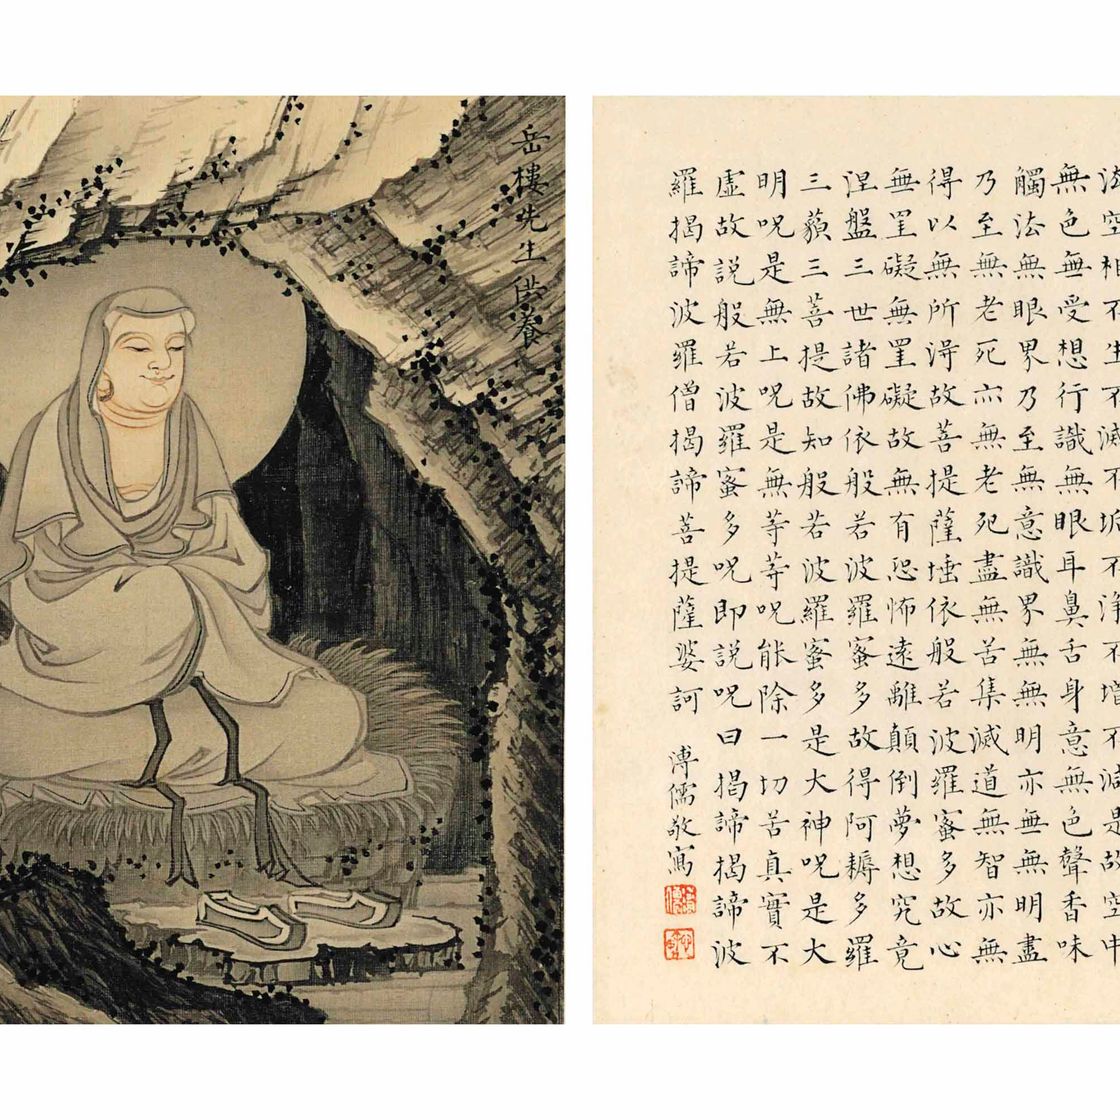 法空相不生不滅不垢不淨不增不減是故空中
無色無受想行識無眼耳鼻舌身意無色聲香味
觸法無眼界乃至無意識界無無明亦無無明盡
乃至無老死亦無老死盡無苦集滅道無智亦無
得以無所淂故菩提薩埵依般若波羅蜜多故心
無罣礙無罣礙故無有恐怖遠離顛倒夢想究竟
涅盤三世諸佛依般若波羅蜜多故得阿耨多羅
三藐三菩提故知般若波羅蜜多是大神呪是大
明呪是無上呪是無等等呪能除一切苦真實不
虛故說般若波羅蜜多呪即說呪曰揭諦揭諦波
羅揭諦波羅僧揭諦菩提薩婆訶 溥儒敬寫
岳樓先生供養